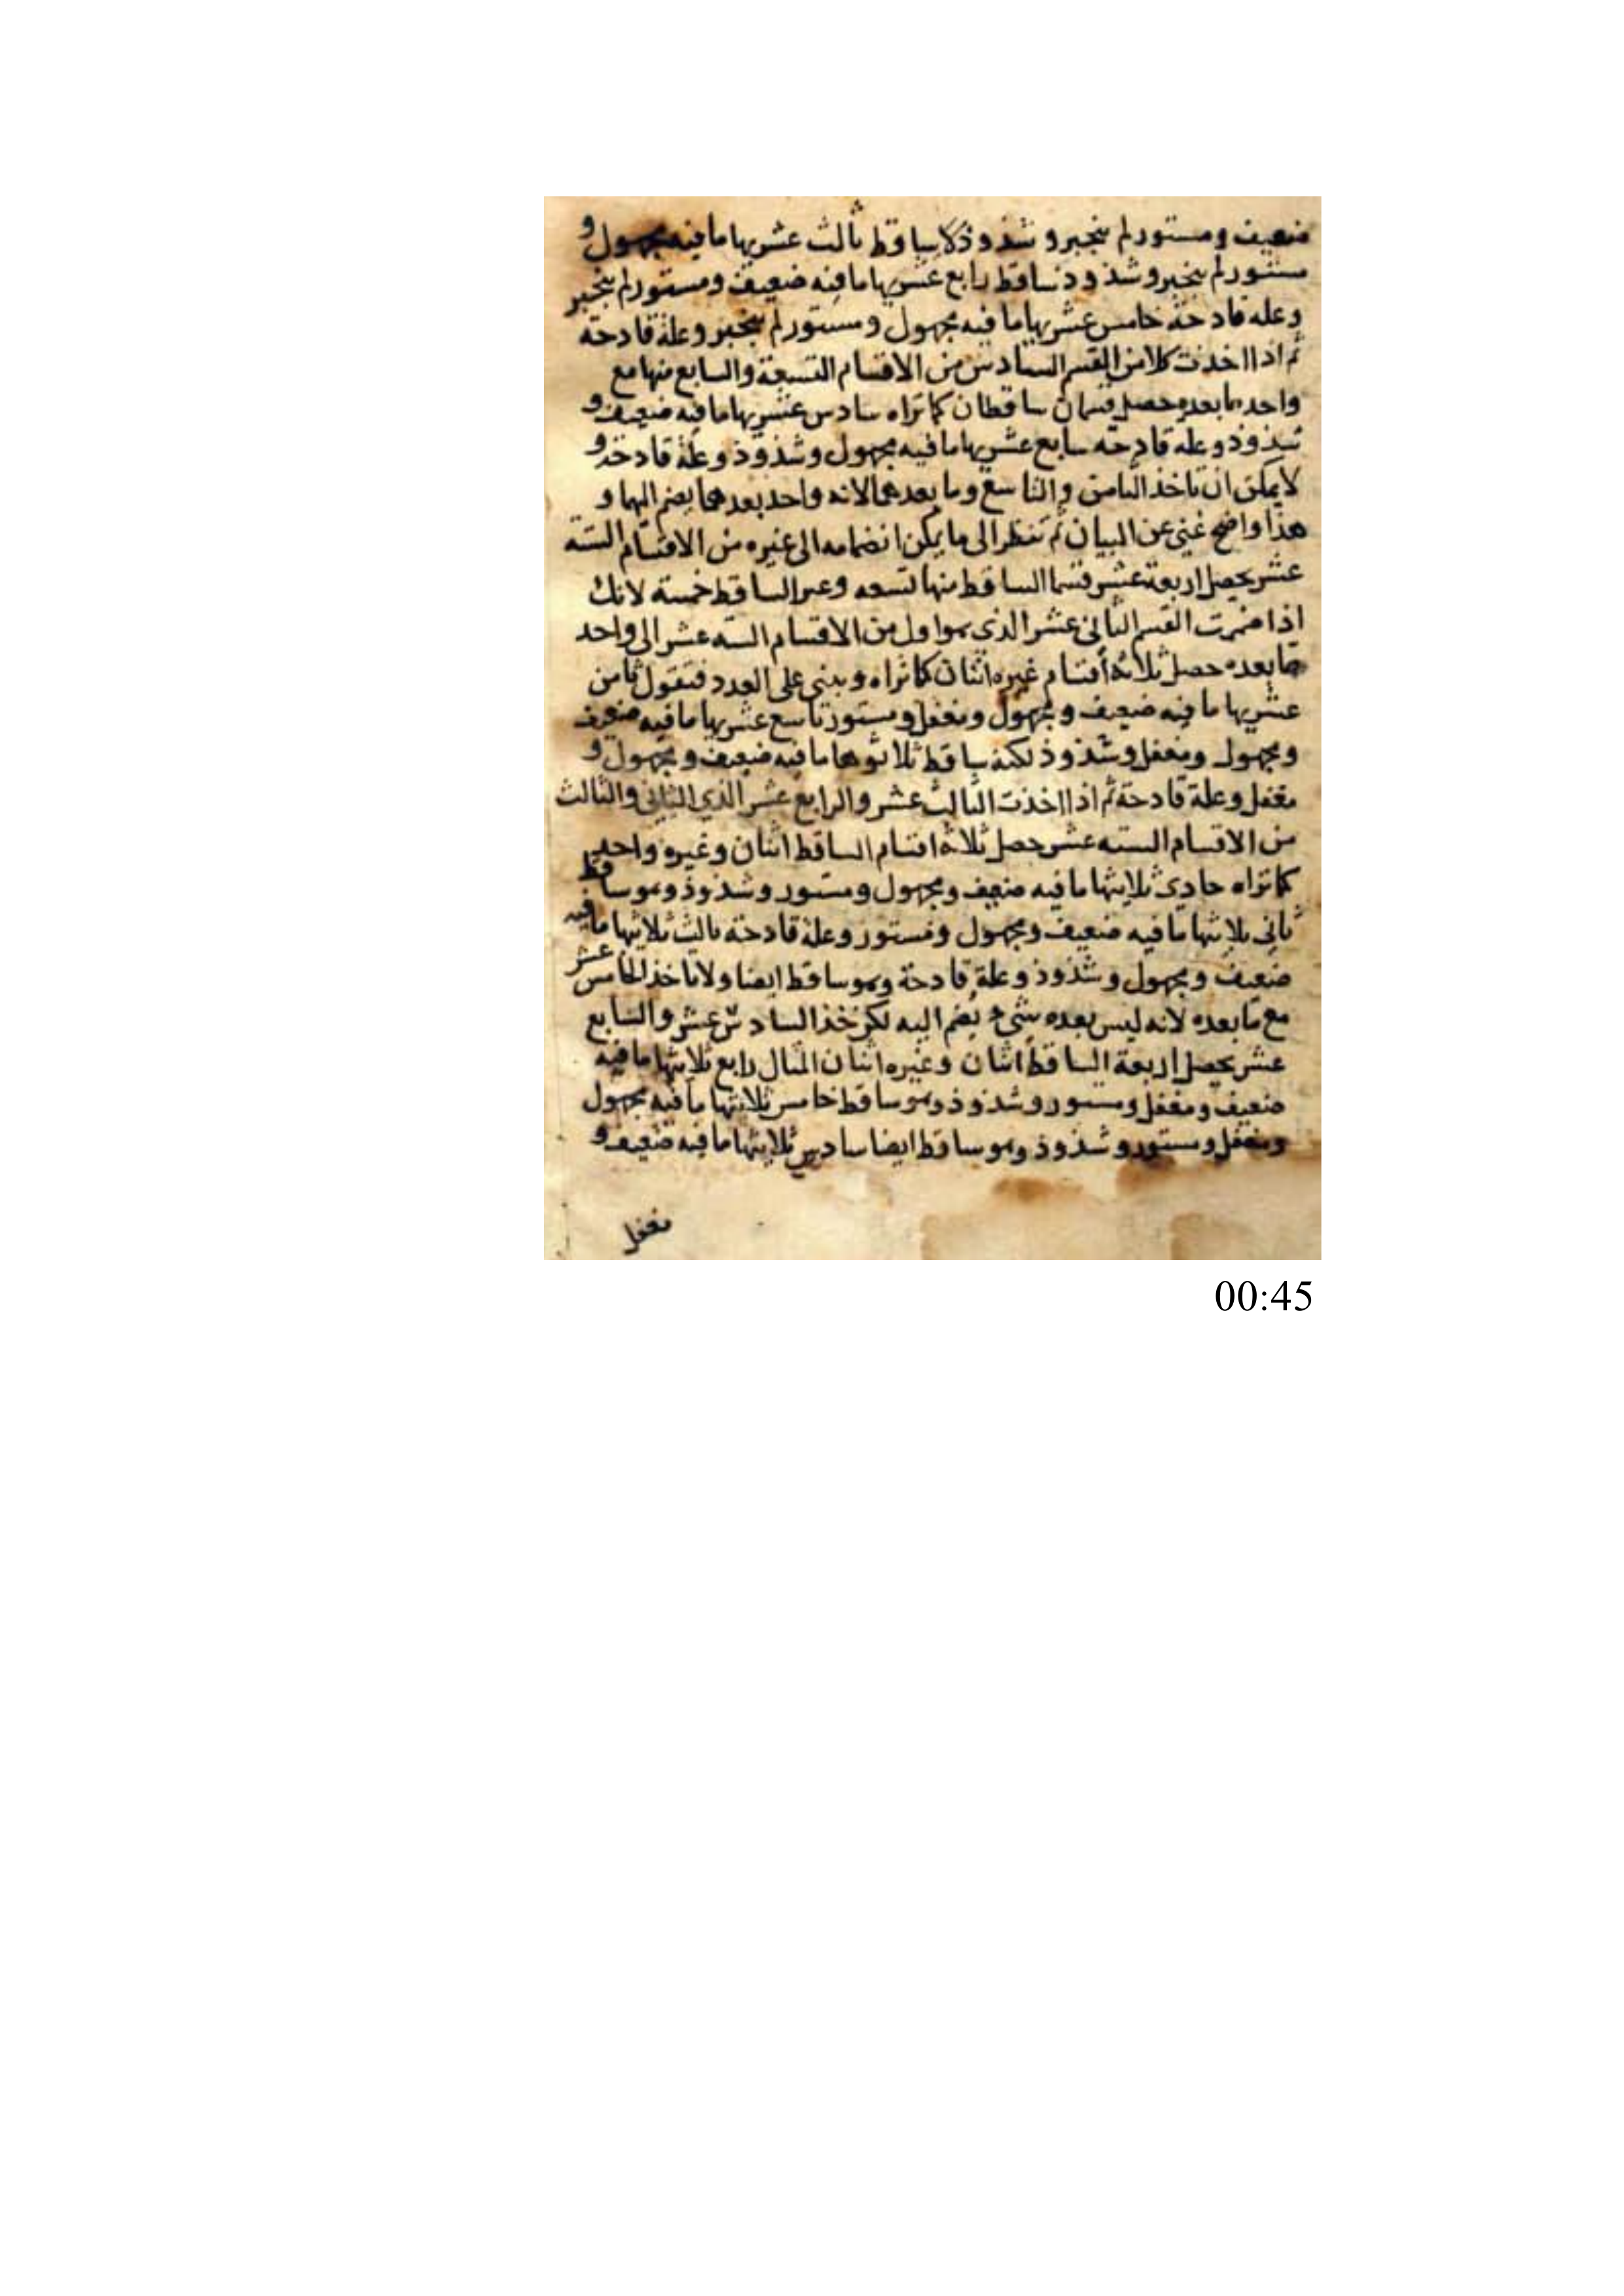 ضعيف ومستور لم ينجبر و شذوذ كلا ساقط ثالث عشريها ما فيه مجهول و
مستور لم ينجبر وشذوذ ساقط رابع عشريها ما فيه ضعيف ومستور لم ينجبر
وعله قادحة خامس عشريها ما فيه مجهول ومستور لم ينجبر وعلة قادحة
ثم اذا اخذت كلا من القسم السادس من الاقسام التسعة والسابع منها مع
واحد مما بعده حصل قسمان ساقطان كما تراه سادس عشريها ما فيه ضعيف و
شذوذ وعله قادحه سابع عشريها ما فيه مجهول وشذوذ وعلة قادحة و
لا يمكن ان تاخذ الثامن والتاسع وما بعدهما لانه واحد بعدهما يضم اليهما و
هذا واضح غني عن البيان ثم تنظر الى ما يمكن انضمامه الى غيره من الاقسام الستة
عشر يحصل اربعة عشر قسما الساقط منها تسعه وغير الساقط خمسة لانك
اذا ضممت القسم الثاني عشر الذي هو اول من الاقسام السته عشر الى واحد
مما بعده حصل ثلاثة أقسام غيره اثنان كما تراه وبنى على العدد فتقول ثامن
عشريها ما فيه ضعيف و مجهول ومغفل ومستور تاسع عشريها ما فيه ضعيف
ومجهول ومغفل وشذوذ لكنه ساقط ثلاثوها ما فيه ضعيف ومجهول و
مغفل وعلة قادحة ثم اذا اخذت الثالث عشر والرابع عشر الذي الثاني والثالث
من الاقسام السته عشر حصل ثلاثة اقسام الساقط اثنان وغيره واحد
كما تراه حادي ثلاثيها ما فيه ضعيف ومجهول ومستور وشذوذ وهو ساقط
ثاني ثلاثيها ما فيه ضعيف ومجهول ومستور وعلة قادحة ثالث ثلاثيها ما فيه
ضعيف ومجهول وشذوذ وعلة قادحة وهو ساقط ايضا ولا تاخذ الخامس عشر
مع ما بعده لانه ليس بعده شيء يضم اليه لكن خذ السادس عشر والسابع
عشر يحصل اربعة الساقط اثنان وغيره اثنان المثال رابع ثلاثيها ما فيه
ضعيف ومغفل ومستور وشذوذ وهو ساقط خامس ثلاثيها ما فيه مجهول
ومغفل ومستور وشذوذ وهو ساقط ايضا سادس ثلاثيها ما فيه ضعيف و
مغفل
00:45